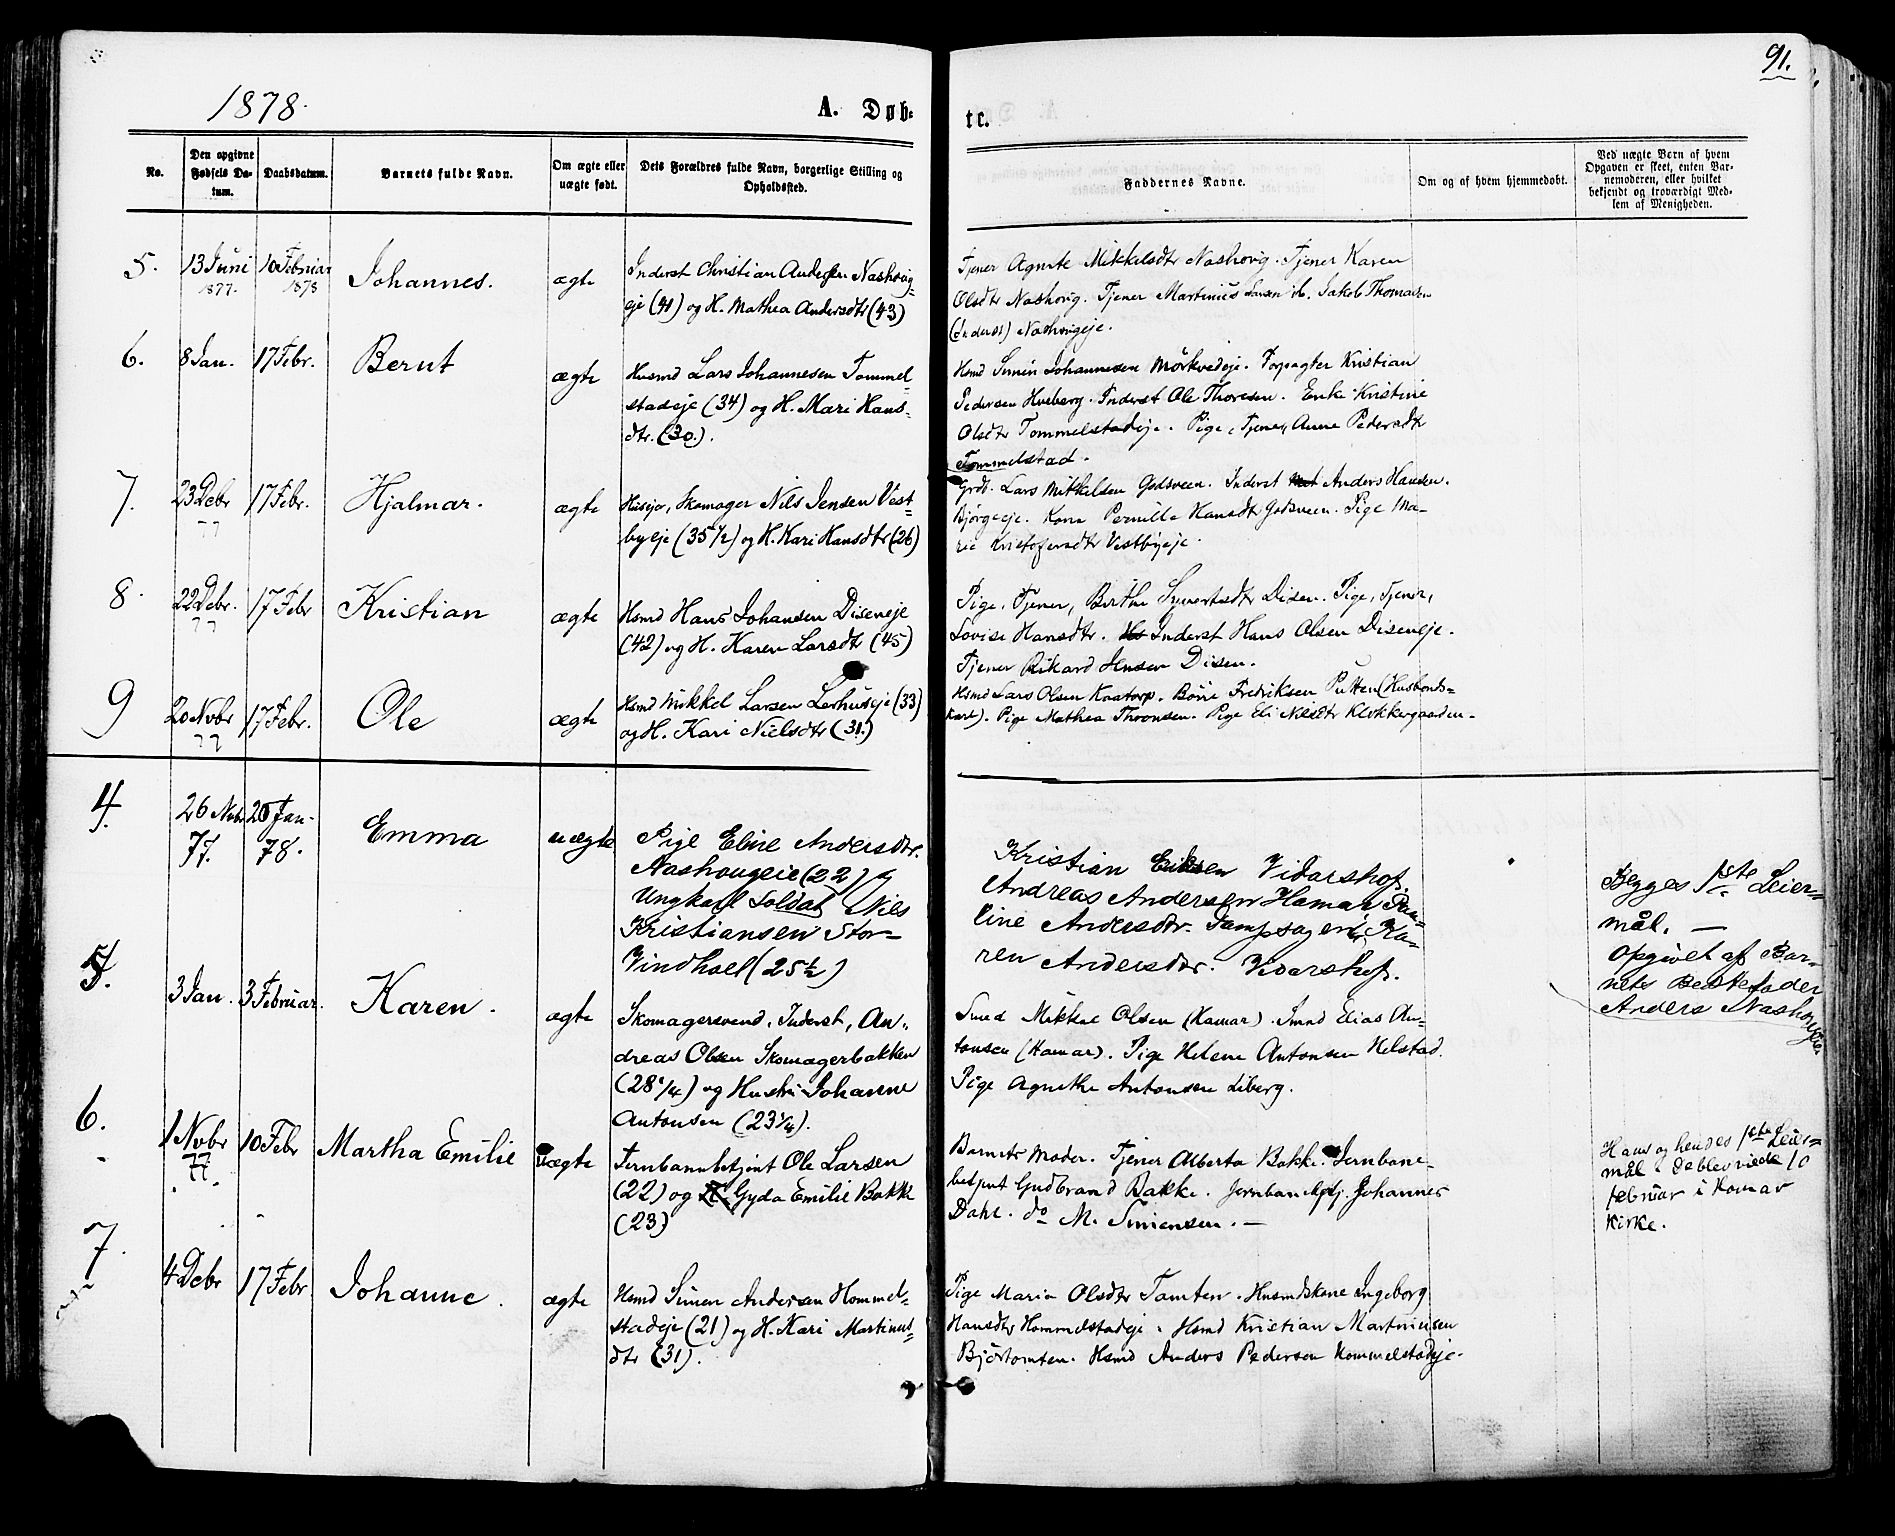 91.
1878.
A. Døb-
te.
No.
Den opgivne Fødsels Da-tum.
Daabsdatum.
Barnets fulde Navn.
Om ægte eller uægte født.
Dets Forældres fulde Navn, borgerlige Stilling og Opholdssted.
Faddernes Navne.
Om og af hvem hjemmedøbt.
Ved uægte Børn af hvem Opgaven er skeet, enten Bar-nemoderen, eller hvilket bekjendt og troværdigt Med-lem af Menigheden.
5. 13 Juni 1877. 10 Februar 1878 Johannes. ægte
Inderst Christian Andersen Nashovig-
eje (41) og H. Mathea Andersdtr (43)
Tjener Agnete Mikkelsdtr Nashovig. Tjener Karen
Olsdtr Nashovig. Tjener Martinius Larsen ib. Jakob Thomasen
(Inderst) Nashovigeje.
6. 8 Jan. 17 Febr. Bernt ægte
Husmd Lars Johannesen Tommel-
stadeje (34) og H. Mari Hans-
dtr. (30.).
Hsmd Simin Johannesen Mörkvedeje. Forpagter Kristian
Pedersen Hveberg. Inderst Ole Thoresen. Enke Kristine
Olsdtr Tommelstadeje. Pige, Tjener, Anne Pedersdtr
Tommelstad.
7. 23 Debr 77 17 Febr. Hjalmar. ægte
Husejer, Skomager Nils Jensen Vest-
byeje (35 1/2) og H. Kari Hansdtr (26)
Grdb. Lars Mikkelsen Godsveen. Inderst Anders Hansen.
Bjørgeeje. Kone Pernille Hansdtr Godsveen. Pige Ma-
rie Kristofersdtr Vestbyeje.
8. 22 Debr. 77 17 Febr Kristian ægte
Hsmd Hans Johansen Diseneje
(42) og H. Karen Larsdtr (45)
Pige, Tjener, Berthe Syvertsdtr Disen. Pige, Tjener,
Lovise Hansdtr. Inderst Hans Olsen Diseneje.
Tjener Rikard Jensen Disen.
9 20 Nvbr 77 17 Febr. Ole ægte
Hsmd Mikkel Larsen Lerhuseje (33)
og H. Kari Nielsdtr (31.)
Hsmd Lars Olsen Kaatorp. Børre Fredriksen Putten (Husbonds-
karl). Pige Mathea Thronsen. Pige Eli Nilsdtr Klokkergaarden.
4. 26 Nvbr 77. 20 Jan. 78. Emma uægte
Pige Eline Andersdtr.
Nashougeie (22) og
Ungkarl Soldat Nils
Kristiansen Stor-
Vindhoel (25 1/2)
Kristian Eriksen Vidarshof.
Andreas Andersen Hamar Pau-
line Andersdtr. Tampsagen, Ka-
ren Andersdtr. Vidarshof.
Begges 1ste Leier-
mål. —
Opgivet af Bar-
nets Bestefader
Anders Nashougeie
5. 3 Jan. 3 Februar. Karen. ægte
Skomagersvend, Inderst, An-
dreas Olsen Skomagerbakken
(28 1/4) og Hustru Johanne
Antonsen (23 1/4).
Smed Mikkel Olsen (Hamar). Smed Elias An-
tonsen (Hamar). Pige Helene Antonsen Helstad.
Pige Agnethe Antonsen Liberg.
6. 1 Nvbr 77. 10 Febr Martha Emilie uægte
Jernbanebetjent Ole Larsen
(22) og Gyda Emilie Bakke
(23)
Barnets Moder. Tjener Alberta Bakke. Jernbane-
betjent Gudbrand Bakke. Jernbanebetj. Johannes
Dahl. do M. Simensen. —
Hans og hendes 1ste Leier-
mål. De blev viede 10
februar i Hamar
Kirke.
7. 4 Debr 17 Febr Johanne. ægte
Hsmd Simen Andersen Hommel-
stadeje (21) og H. Kari Martinus-
dtr (31).
Pige Marie Olsdtr Tomten. Husmdskone Ingeborg
Hansdtr Hommelstadeje. Hsmd Kristian Martinisen
Bjørtomten. Hsmd Anders Pedersen Hommelstadeje.